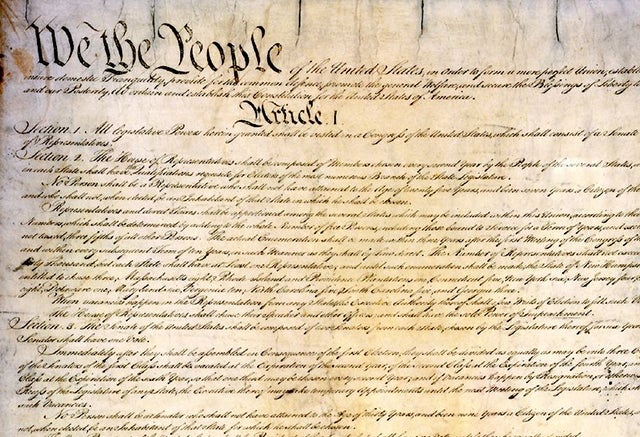 We the People of the United States, in Order to form a more perfect Union, establish
insure domestic Tranquility, provide for the common defence, promote the general Welfare, and secure the Blessings of Liberty to
and our Posterity, do ordain and establish this Constitution for the United States of America.
Article 1
Section 1. All legislative Powers herein granted shall be vested in a Congress of the United States, which shall consist of a Senate
of Representatives.
Section 2. The House of Representatives shall be composed of Members chosen every second Year by the People of the several States,
in each State shall have Qualifications requisite for Electors of the most numerous Branch of the State Legislature.
No Person shall be a Representative who shall not have attained to the Age of twenty five Years, and been seven Years a Citizen of the
and who shall not, when elected, be an Inhabitant of that State in which he shall be chosen.
Representatives and direct Taxes shall be apportioned among the several States which may be included within this Union, according to the
Numbers, which shall be determined by adding to the whole Number of free Persons, including those bound to Service for a Term of Years, and
not taxed, three fifths of all other Persons. The actual Enumeration shall be made within three Years after the first Meeting of the Congress of
and within every subsequent Term of ten Years, in such Manner as they shall by Law direct. The Number of Representatives shall not exceed
thirty Thousand, but each State shall have at Least one Representative; and until such enumeration shall be made, the State of New Hampshire
entitled to chuse three, Massachusetts eight, Rhode Island and Providence Plantations one, Connecticut five, New York six, New Jersey four
eight, Delaware one, Maryland six, Virginia ten, North Carolina five, South Carolina five, and Georgia three.
When vacancies happen in the Representation from any State, the Executive Authority thereof shall issue Writs of Election to fill such
The House of Representatives shall chuse their Speaker and other Officers; and shall have the sole Power of Impeachment.
Section 3. The Senate of the United States shall be composed of two Senators from each State, chosen by the Legislature thereof, for six Years
Senator shall have one Vote.
Immediately after they shall be assembled in Consequence of the first Election, they shall be divided as equally as may be into three
of the Senators of the first Class shall be vacated at the Expiration of the second Year, of the second Class at the Expiration of the fourth Year, and
Class at the Expiration of the sixth Year, so that one third may be chosen every second Year; and if Vacancies happen by Resignation, or otherwise
Recess of the Legislature of any State, the Executive thereof may make temporary Appointments until the next Meeting of the Legislature, which
such Vacancies.
No Person shall be a Senator who shall not have attained to the Age of thirty Years, and been nine Years a Citizen of the United States,
not, when elected, be an Inhabitant of that State for which he shall be chosen.